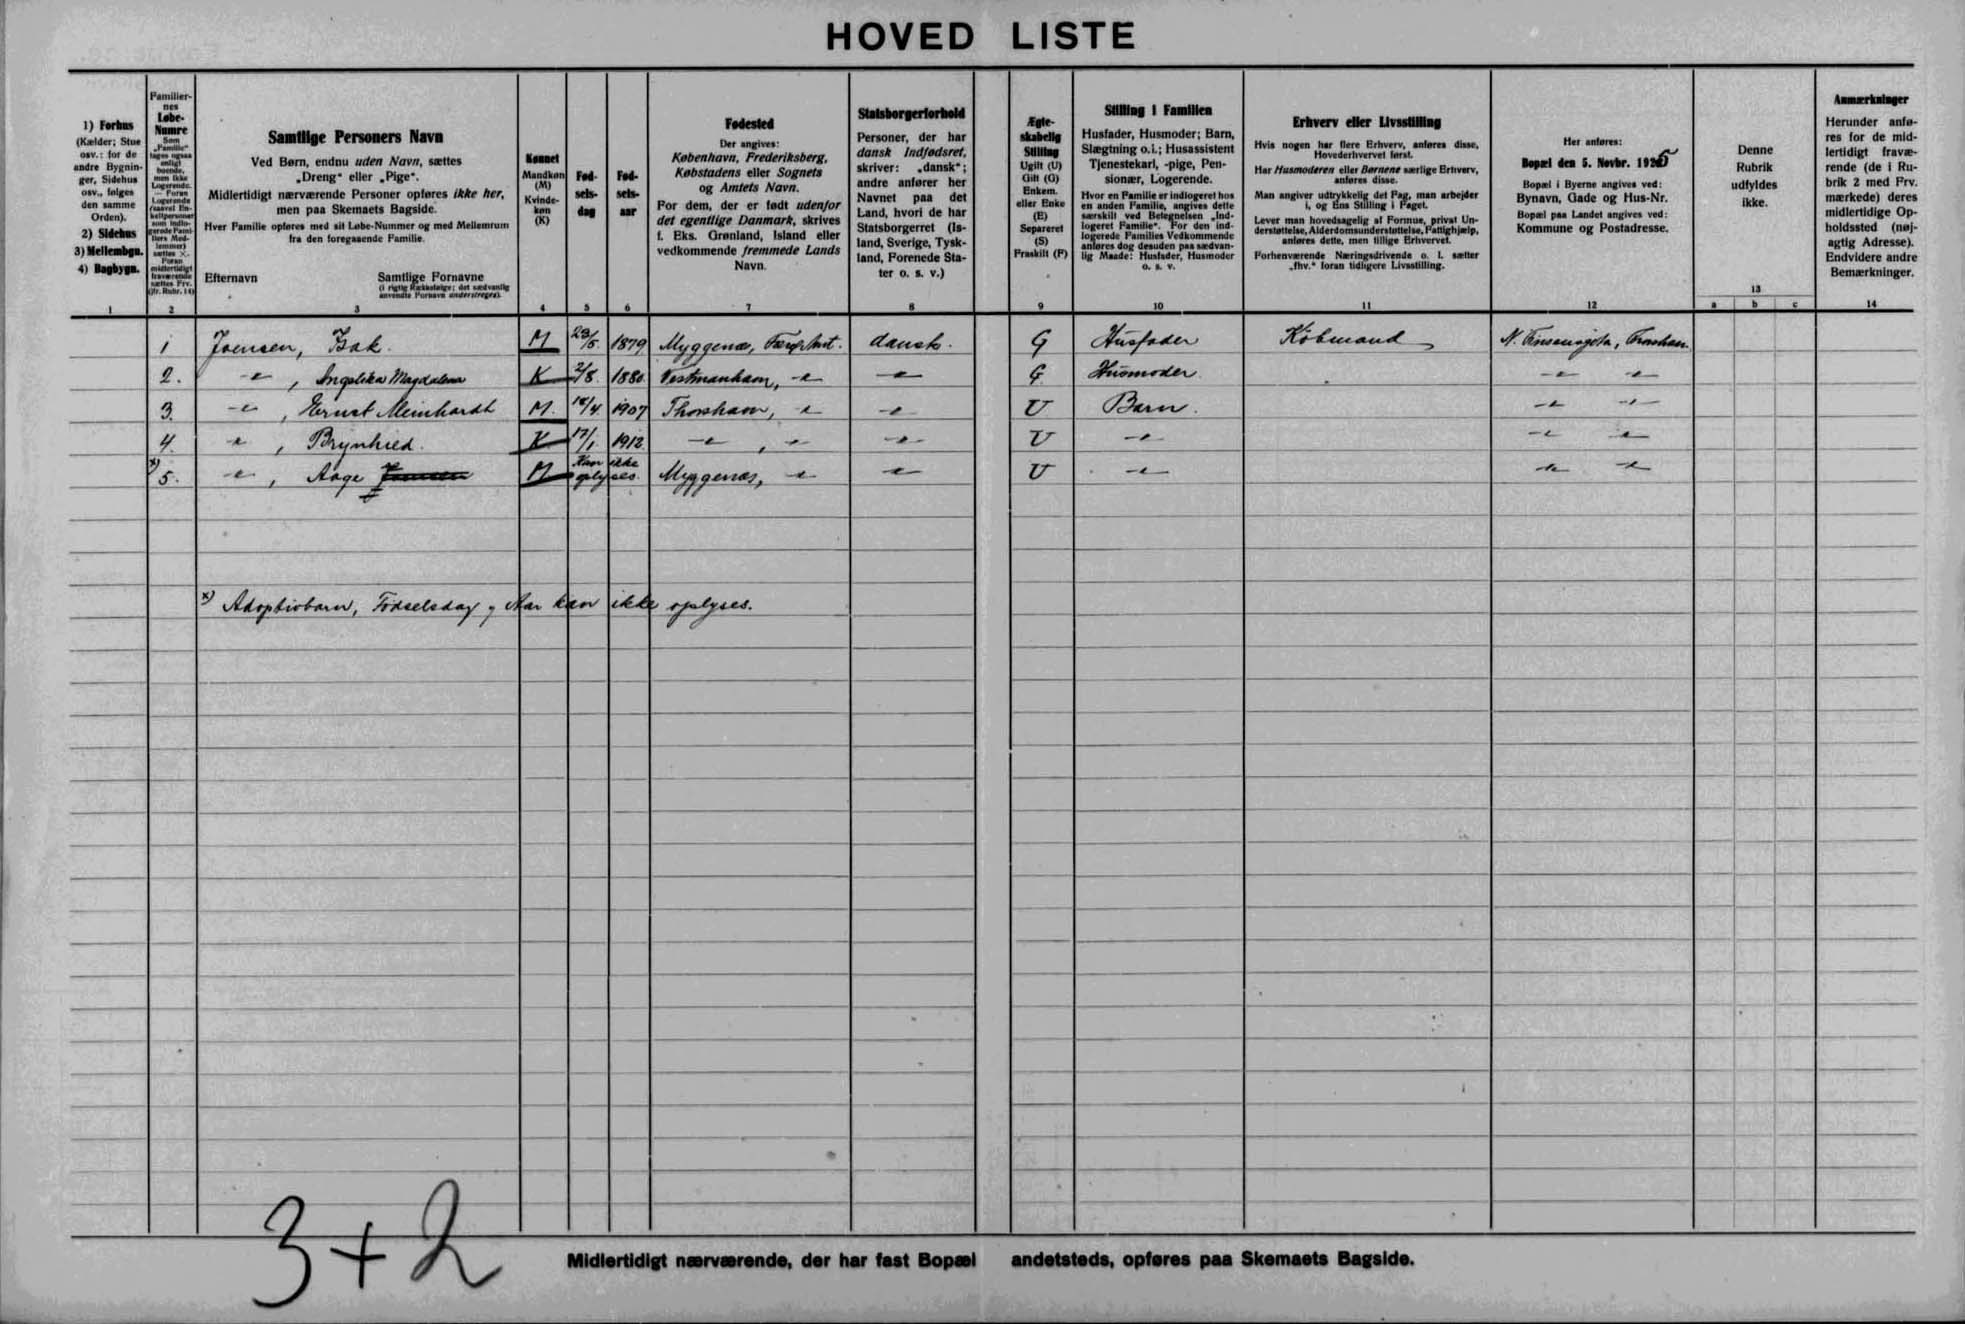 HOVED LISTE
1) Forhus
(Kælder; Stue
osv.: for de
andre Bygnin-
ger, Sidehus
osv., følges
den samme
Orden).
2) Sidehus
3) Mellembgn.
4) Bagbygn.
1
Familier-
nes
Løbe-
Numre
Som
„Familie“
tages ogsaa
enligt
boende,
men ikke
Logerende.
— Foran
Logerende
(saavel En-
keltpersoner
som indlo-
gerede Fami-
liers Med-
lemmer)
sættes ×.
Foran
midlertidigt
fraværende
sættes Frv.
(jfr. Rubr. 14)
2
Samtlige Personers Navn
Ved Børn, endnu uden Navn, sættes
„Dreng“ eller „Pige“.
Midlertidigt nærværende Personer opføres ikke her,
men paa Skemaets Bagside.
Hver Familie opføres med sit Løbe-Nummer og med Mellemrum
fra den foregaaende Familie.
Efternavn
Samtlige Fornavne
(i rigtig Rækkefølge; det sædvanlig
anvendte Fornavn understreges).
3
Kønnet
Mandkøn
(M)
Kvinde-
køn
(K)
4
Fød-
sels-
dag
5
Fød-
sels-
aar
6
Fødested
Der angives:
København, Frederiksberg,
Købstadens eller Sognets
og Amtets Navn.
For dem, der er født udenfor
det egentlige Danmark, skrives
f. Eks. Grønland, Island eller
vedkommende fremmede Lands
Navn.
7
Statsborgerforhold
Personer, der har
dansk Indfødsret,
skriver: „dansk“;
andre anfører her
Navnet paa det
Land, hvori de har
Statsborgerret (Is-
land, Sverige, Tysk-
land, Forenede Sta-
ter o. s. v.)
8
Ægte-
skabelig
Stilling
Ugift (U)
Gift (G)
Enkem.
eller Enke
(E)
Separeret
(S)
Fraskilt (F)
9
Stilling i Familien
Husfader, Husmoder; Barn,
Slægtning o.l.; Husassistent
Tjenestekarl, -pige, Pen-
sionær, Logerende.
Hvor en Familie er indlogeret hos
en anden Familie, angives dette
særskilt ved Betegnelsen „Ind-
logeret Familie“. For den ind-
logerede Families Vedkommende
anføres dog desuden paa sædvan-
lig Maade: Husfader, Husmoder
o. s. v.
10
Erhverv eller Livsstilling
Hvis nogen har flere Erhverv, anføres disse,
Hovederhvervet først.
Har Husmoderen eller Børnene særlige Erhverv,
anføres disse.
Man angiver udtrykkelig det Fag, man arbejder
i, og Ens Stilling i Faget.
Lever man hovedsagelig af Formue, privat Un-
derstøttelse, Alderdomsunderstøttelse, Fattighjælp,
anføres dette, men tillige Erhvervet.
Forhenværende Næringsdrivende o. l. sætter
„fhv.“ foran tidligere Livsstilling.
11
Her anføres:
Bopæl den 5. Novbr. 1925
Bopæl i Byerne angives ved:
Bynavn, Gade og Hus-Nr.
Bopæl paa Landet angives ved:
Kommune og Postadresse.
12
Denne
Rubrik
udfyldes
ikke.
13
a b c
Anmærkninger
Herunder anfø-
res for de mid-
lertidigt fravæ-
rende (de i Ru-
brik 2 med Frv.
mærkede) deres
midlertidige Op-
holdssted (nøj-
agtig Adresse).
Endvidere andre
Bemærkninger.
14
1 Joensen, Isak. M 23/5 1879 Myggenæs, Færø Amt. dansk. G Husfader Købmand N. Finsensgøta, Thorshavn
2. -"- , Angelika Magdalena K 2/8 1880 Vestmanhavn, -"- -"- G. Husmoder. -"- -"-
3. -"- , Ernst Meinhardt M. 18/4 1907 Thorshavn, -"- -"- U Barn. -"- -"-
4. -"- , Brynhild. K 17/1 1912 -"- , -"- -"- U -"- -"- -"-
×) 5. -"- , Aage Joensen M Kan ikke oplyses. Myggenæs, -"- -"- U -"- -"- -"-
×) Adoptivbarn, Fødselsdag og Aar kan ikke oplyses.
3 + 2
Midlertidigt nærværende, der har fast Bopæl andetsteds, opføres paa Skemaets Bagside.